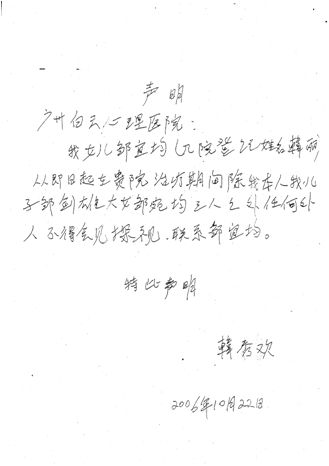 声明
广州白云心理医院：
我女儿邹宜均（入院登记姓名韩丽）
从即日起在贵院治疗期间除我本人我儿
子邹剑雄大女邹宛均三人之外任何外
人不得会见、探视、联系邹宜均。
特此声明
韩秀欢
2006年10月22日